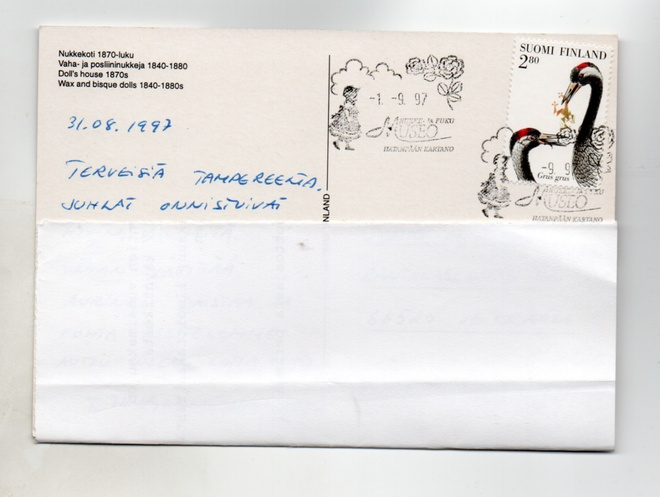 Nukkekoti 1870-luku
Vaha- ja posliininukkeja 1840-1880
Doll's house 1870s
Wax and bisque dolls 1840-1880s
31.08.1997
TERVEISIÄ TAMPEREELTA,
JUHLAT ONNISTUIVAT
NLAND
-1. -9. 97
NUKKE- JA PUKU
MUSEO
HATANPÄÄN KARTANO
SUOMI FINLAND
2,80
Grus grus
-9. 9
MUSEO
HATANPÄÄN KARTANO